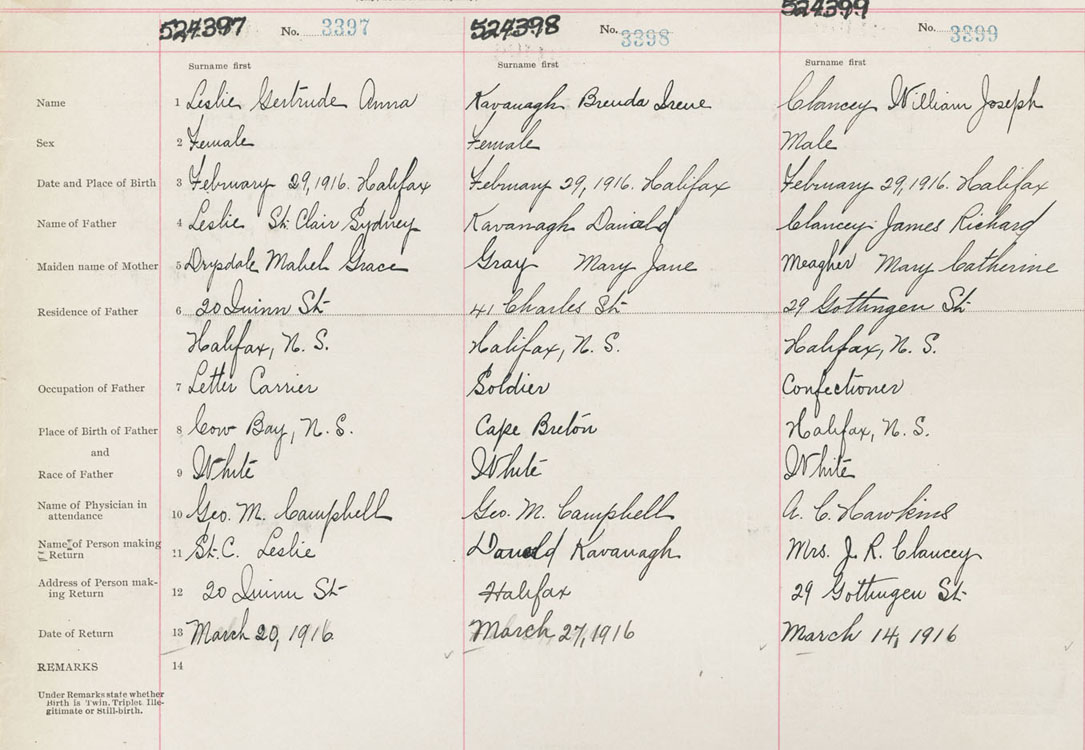 524397 No. 3397 524398 No. 3398 524399 No. 3399
Surname first Surname first Surname first
Name 1 Leslie Gertrude Anna Kavanagh Brenda Irene Clancey William Joseph
Sex 2 Female Female Male
Date and Place of Birth 3 February 29, 1916. Halifax February 29, 1916. Halifax February 29, 1916. Halifax
Name of Father 4 Leslie St. Clair Sydney Kavanagh Donald Clancey James Richard
Maiden name of Mother 5 Drysdale Mabel Grace Gray Mary Jane Meagher Mary Catherine
Residence of Father 6 20 Quinn St 41 Charles St. 29 Gottingen St.
Halifax, N. S. Halifax, N. S. Halifax, N. S.
Occupation of Father 7 Letter Carrier Soldier Confectioner
Place of Birth of Father 8 Cow Bay, N. S. Cape Breton Halifax, N. S.
and
Race of Father 9 White White White
Name of Physician in
attendance 10 Geo. M. Campbell Geo. M. Campbell A. C. Hawkins
Name of Person making
Return 11 St. C. Leslie Donald Kavanagh Mrs. J. R. Clancey
Address of Person mak-
ing Return 12 20 Quinn St Halifax 29 Gottingen St.
Date of Return 13 March 20, 1916 March 27, 1916 March 14, 1916
REMARKS 14
Under Remarks state whether
Birth is Twin, Triplet, Ille-
gitimate or Still-birth.